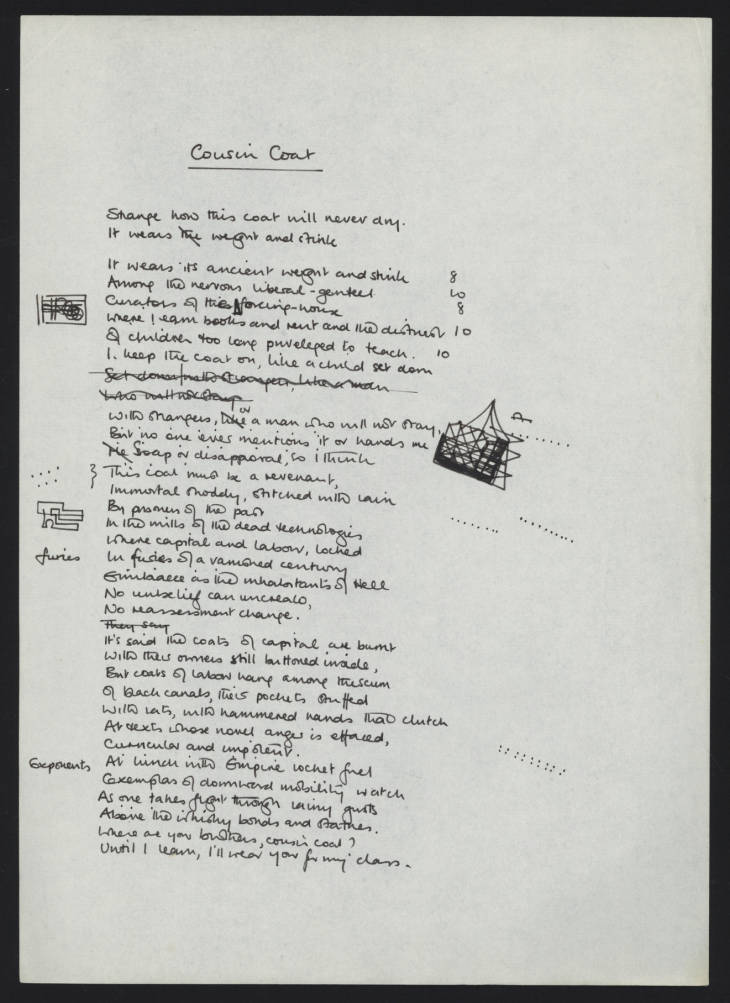 Cousin Coat
Strange how this coat will never dry.
It wears the weight and stink
It wears its ancient weight and stink 8
Among the nervous liberal-genteel 10
Curators of this forcing-house 8
Where I earn books and rent and the distrust 10
Of children too long privileged to teach. 10
I keep the coat on, like a child set down
Set down with strangers, like a man
Who will not stay
With strangers, like or a man who will not stay,
But no one ever mentions it or hands me
The Soap or disapproval, so I think
This coat must be a revenant,
Immortal shoddy, stitched with rain
By prisoners of the past
In the mills of the dead technologies
Where capital and labour, locked
furies In furies of a vanished century
Embrace as the inhabitants of Hell
No unbelief can uncreate,
No reassessment change.
They say
It's said the coats of capital are burnt
With their owners still buttoned inside,
But coats of labour hang among the scum
Of back canals, their pockets stuffed
With rats, with hammered hands that clutch
At texts whose novel anger is effaced,
Curricular and impotent.
Exponents At lunch with Empire rocket fuel
Exemplars of downward mobility watch
As one takes flight through rainy gusts
Above the whisky bonds and statues.
Where are your brothers, cousin coat?
Until I learn, I'll wear you for my class.